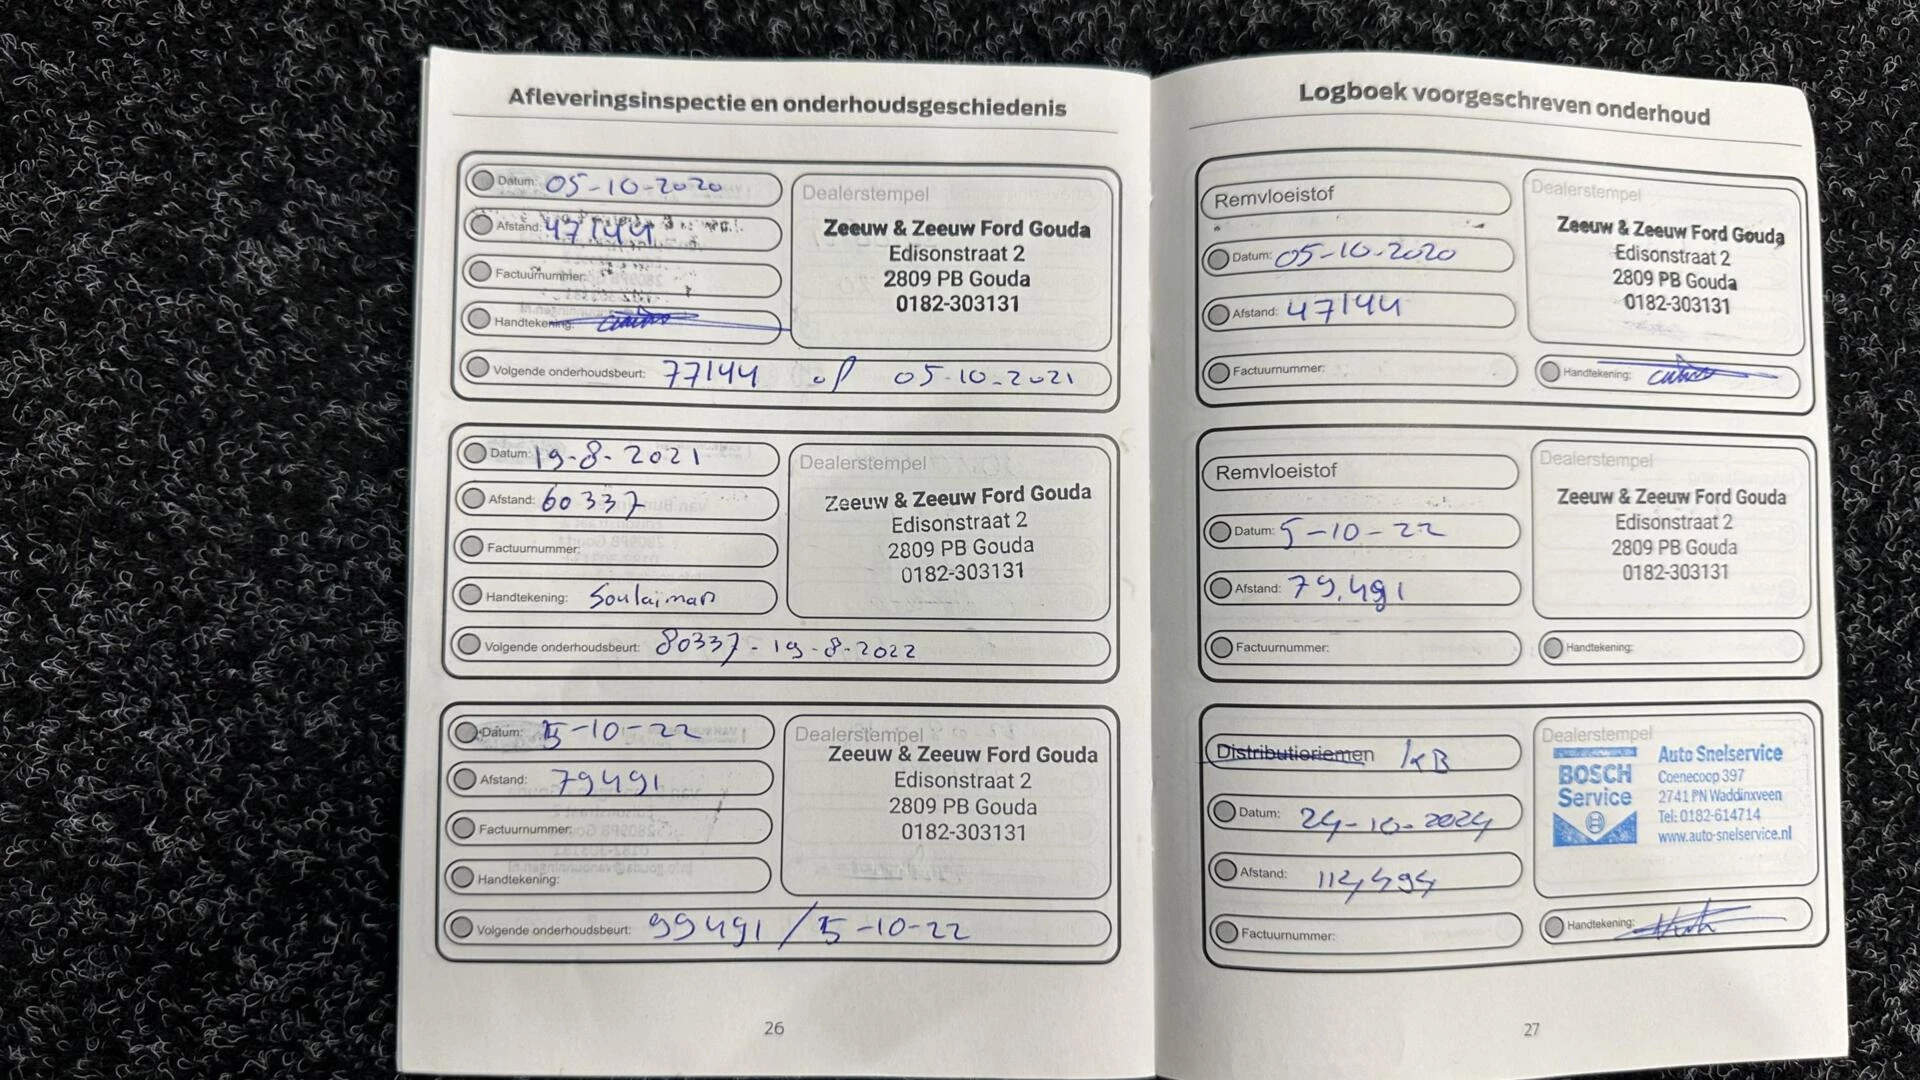 Afleveringsinspectie en onderhoudsgeschiedenis
Datum: 05-10-2020
Afstand: 47144
Factuurnummer:
Handtekening:
Dealerstempel
Zeeuw & Zeeuw Ford Gouda
Edisonstraat 2
2809 PB Gouda
0182-303131
Volgende onderhoudsbeurt: 77144 of 05-10-2021
Datum: 19-8-2021
Afstand: 60337
Factuurnummer:
Handtekening: Soulaiman
Dealerstempel
Zeeuw & Zeeuw Ford Gouda
Edisonstraat 2
2809 PB Gouda
0182-303131
Volgende onderhoudsbeurt: 80337 - 19-8-2022
Datum: 5-10-22
Afstand: 79491
Factuurnummer:
Handtekening:
Dealerstempel
Zeeuw & Zeeuw Ford Gouda
Edisonstraat 2
2809 PB Gouda
0182-303131
Volgende onderhoudsbeurt: 99491 / 5-10-22
26
Logboek voorgeschreven onderhoud
Remvloeistof
Datum: 05-10-2020
Afstand: 47144
Factuurnummer:
Dealerstempel
Zeeuw & Zeeuw Ford Gouda
Edisonstraat 2
2809 PB Gouda
0182-303131
Handtekening:
Remvloeistof
Datum: 5-10-22
Afstand: 79.491
Factuurnummer:
Dealerstempel
Zeeuw & Zeeuw Ford Gouda
Edisonstraat 2
2809 PB Gouda
0182-303131
Handtekening:
Distributieriemen
Datum: 24-10-2024
Afstand: 114494
Factuurnummer:
Dealerstempel
BOSCH
Service
Auto Snelservice
Coenecoop 397
2741 PN Waddinxveen
Tel: 0182-614714
www.auto-snelservice.nl
Handtekening:
27